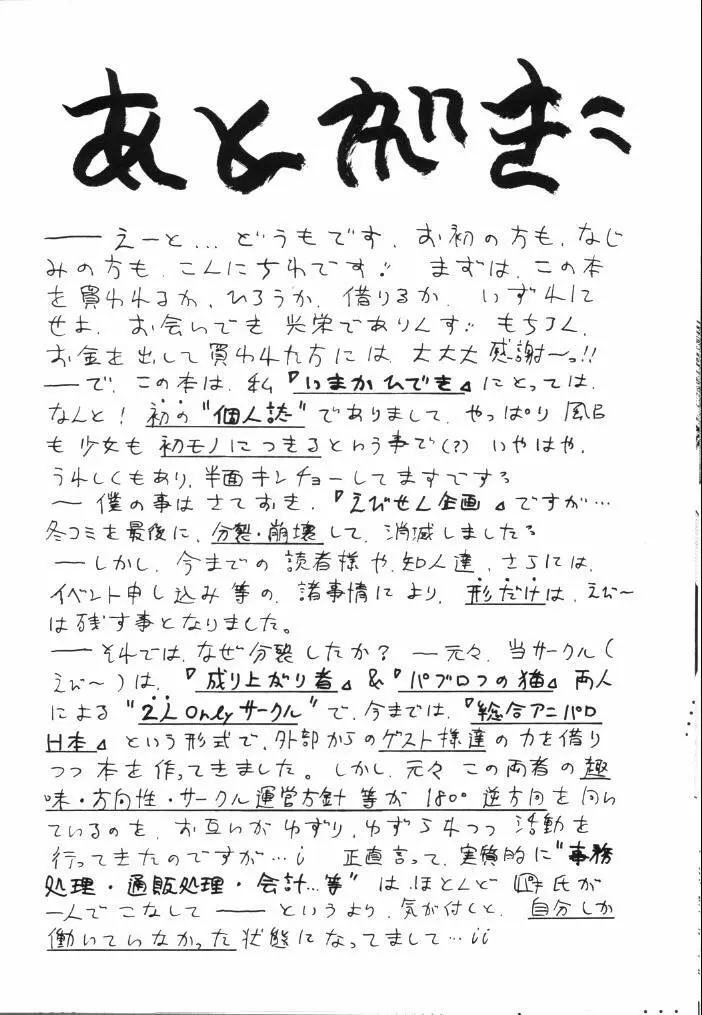 あとがき
── えーと… どうもです. お初の方も, なじ
みの方も, こんにちわです!! まずは, この本
を買われるか, ひろうか, 借りるか, いずれに
せよ, お会いでき 光栄でありんす!! もちろん,
お金を出して買われた方には 大大大 感謝〜っ!!
── で, この本は, 私『いまかひでき』にとっては,
なんと! 初の "個人誌" でありまして, やっぱり 風呂
も 少女も 初モノにつきるという事で(?) いやはや,
うれしくもあり, 半面 キンチョーしてますです。
〜 僕の事は さておき, 『えびせん企画』ですが…
冬コミを最後に, 分裂・崩壊して, 消滅しました。
── しかし, 今までの 読者様 や, 知人達, さらには,
イベント申し込み 等の, 諸事情により, 形だけは, えび〜
は残す事となりました。
── それでは, なぜ分裂したか? ── 元々, 当サークル(
えび〜)は, 『成り上がり者』&『パブロつの猫』両人
による "2人Onlyサークル" で, 今までは, 『総合アニパロ
H本』という形式で, 外部からのゲスト様達の力を借り
つつ 本を作ってきました。しかし, 元々 この両者の趣
味・方向性・サークル運営方針 等が 180° 逆方向を向い
ているのを, お互いが ゆずり, ゆずられつつ 活動を
行ってきたのですが…; 正直言って, 実質的に "事務
処理・通販処理・会計…等" は ほとんど 氏が
一人でこなして ── というより, 気が付くと, 自分しか
働いていなかった状態になってまして…;;